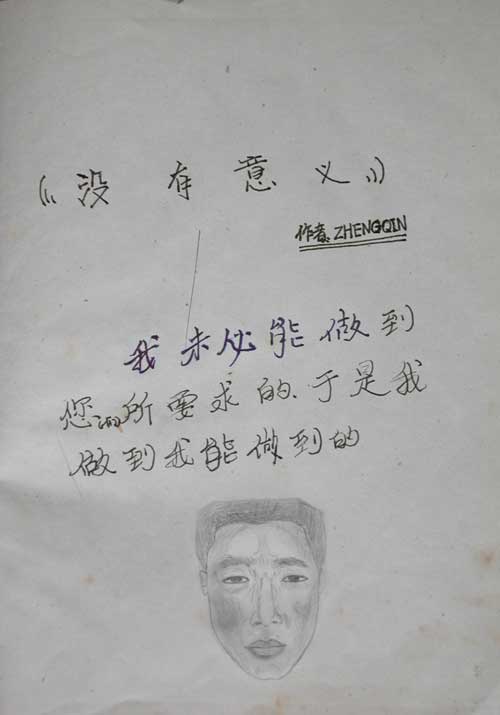 《没有意义》
作者:ZHENGQIN
我未必能做到
您们所要求的、于是我
做到我能做到的